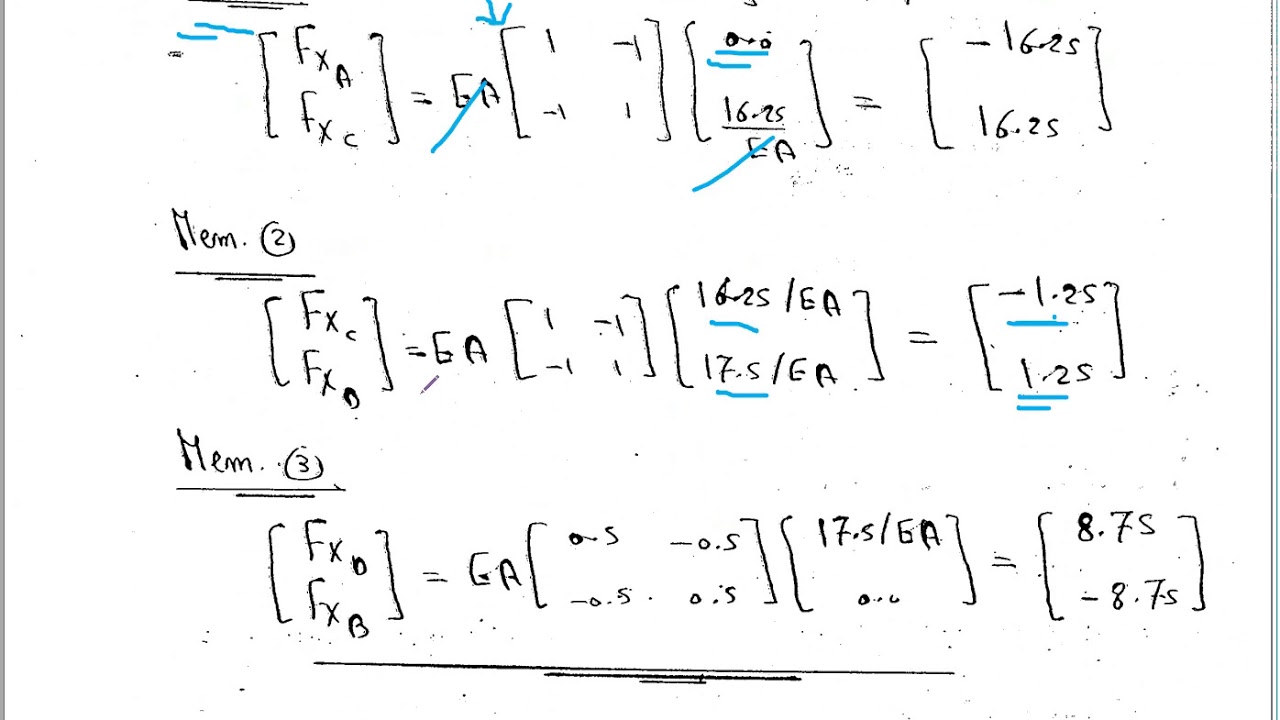 [F_XA F_XC] = EA [1 -1 -1 1] [0.0 16.25/EA] = [-16.25 16.25]
Mem. ②
[F_XC F_XD] = EA [1 -1 -1 1] [16.25/EA 17.5/EA] = [-1.25 1.25]
Mem. ③
[F_XD F_XB] = EA [0.5 -0.5 -0.5 0.5] [17.5/EA 0.0] = [8.75 -8.75]